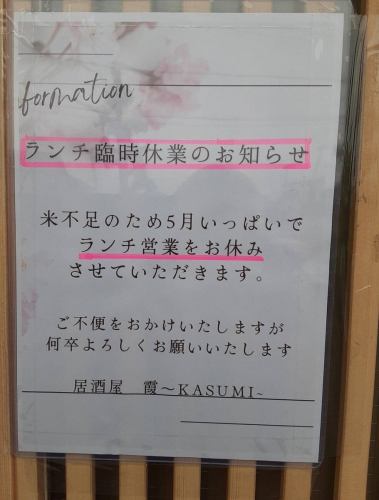 formation
ランチ臨時休業のお知らせ
米不足のため5月いっぱいで
ランチ営業をお休み
させていただきます。
ご不便をおかけいたしますが
何卒よろしくお願いいたします
居酒屋 霞〜KASUMI~